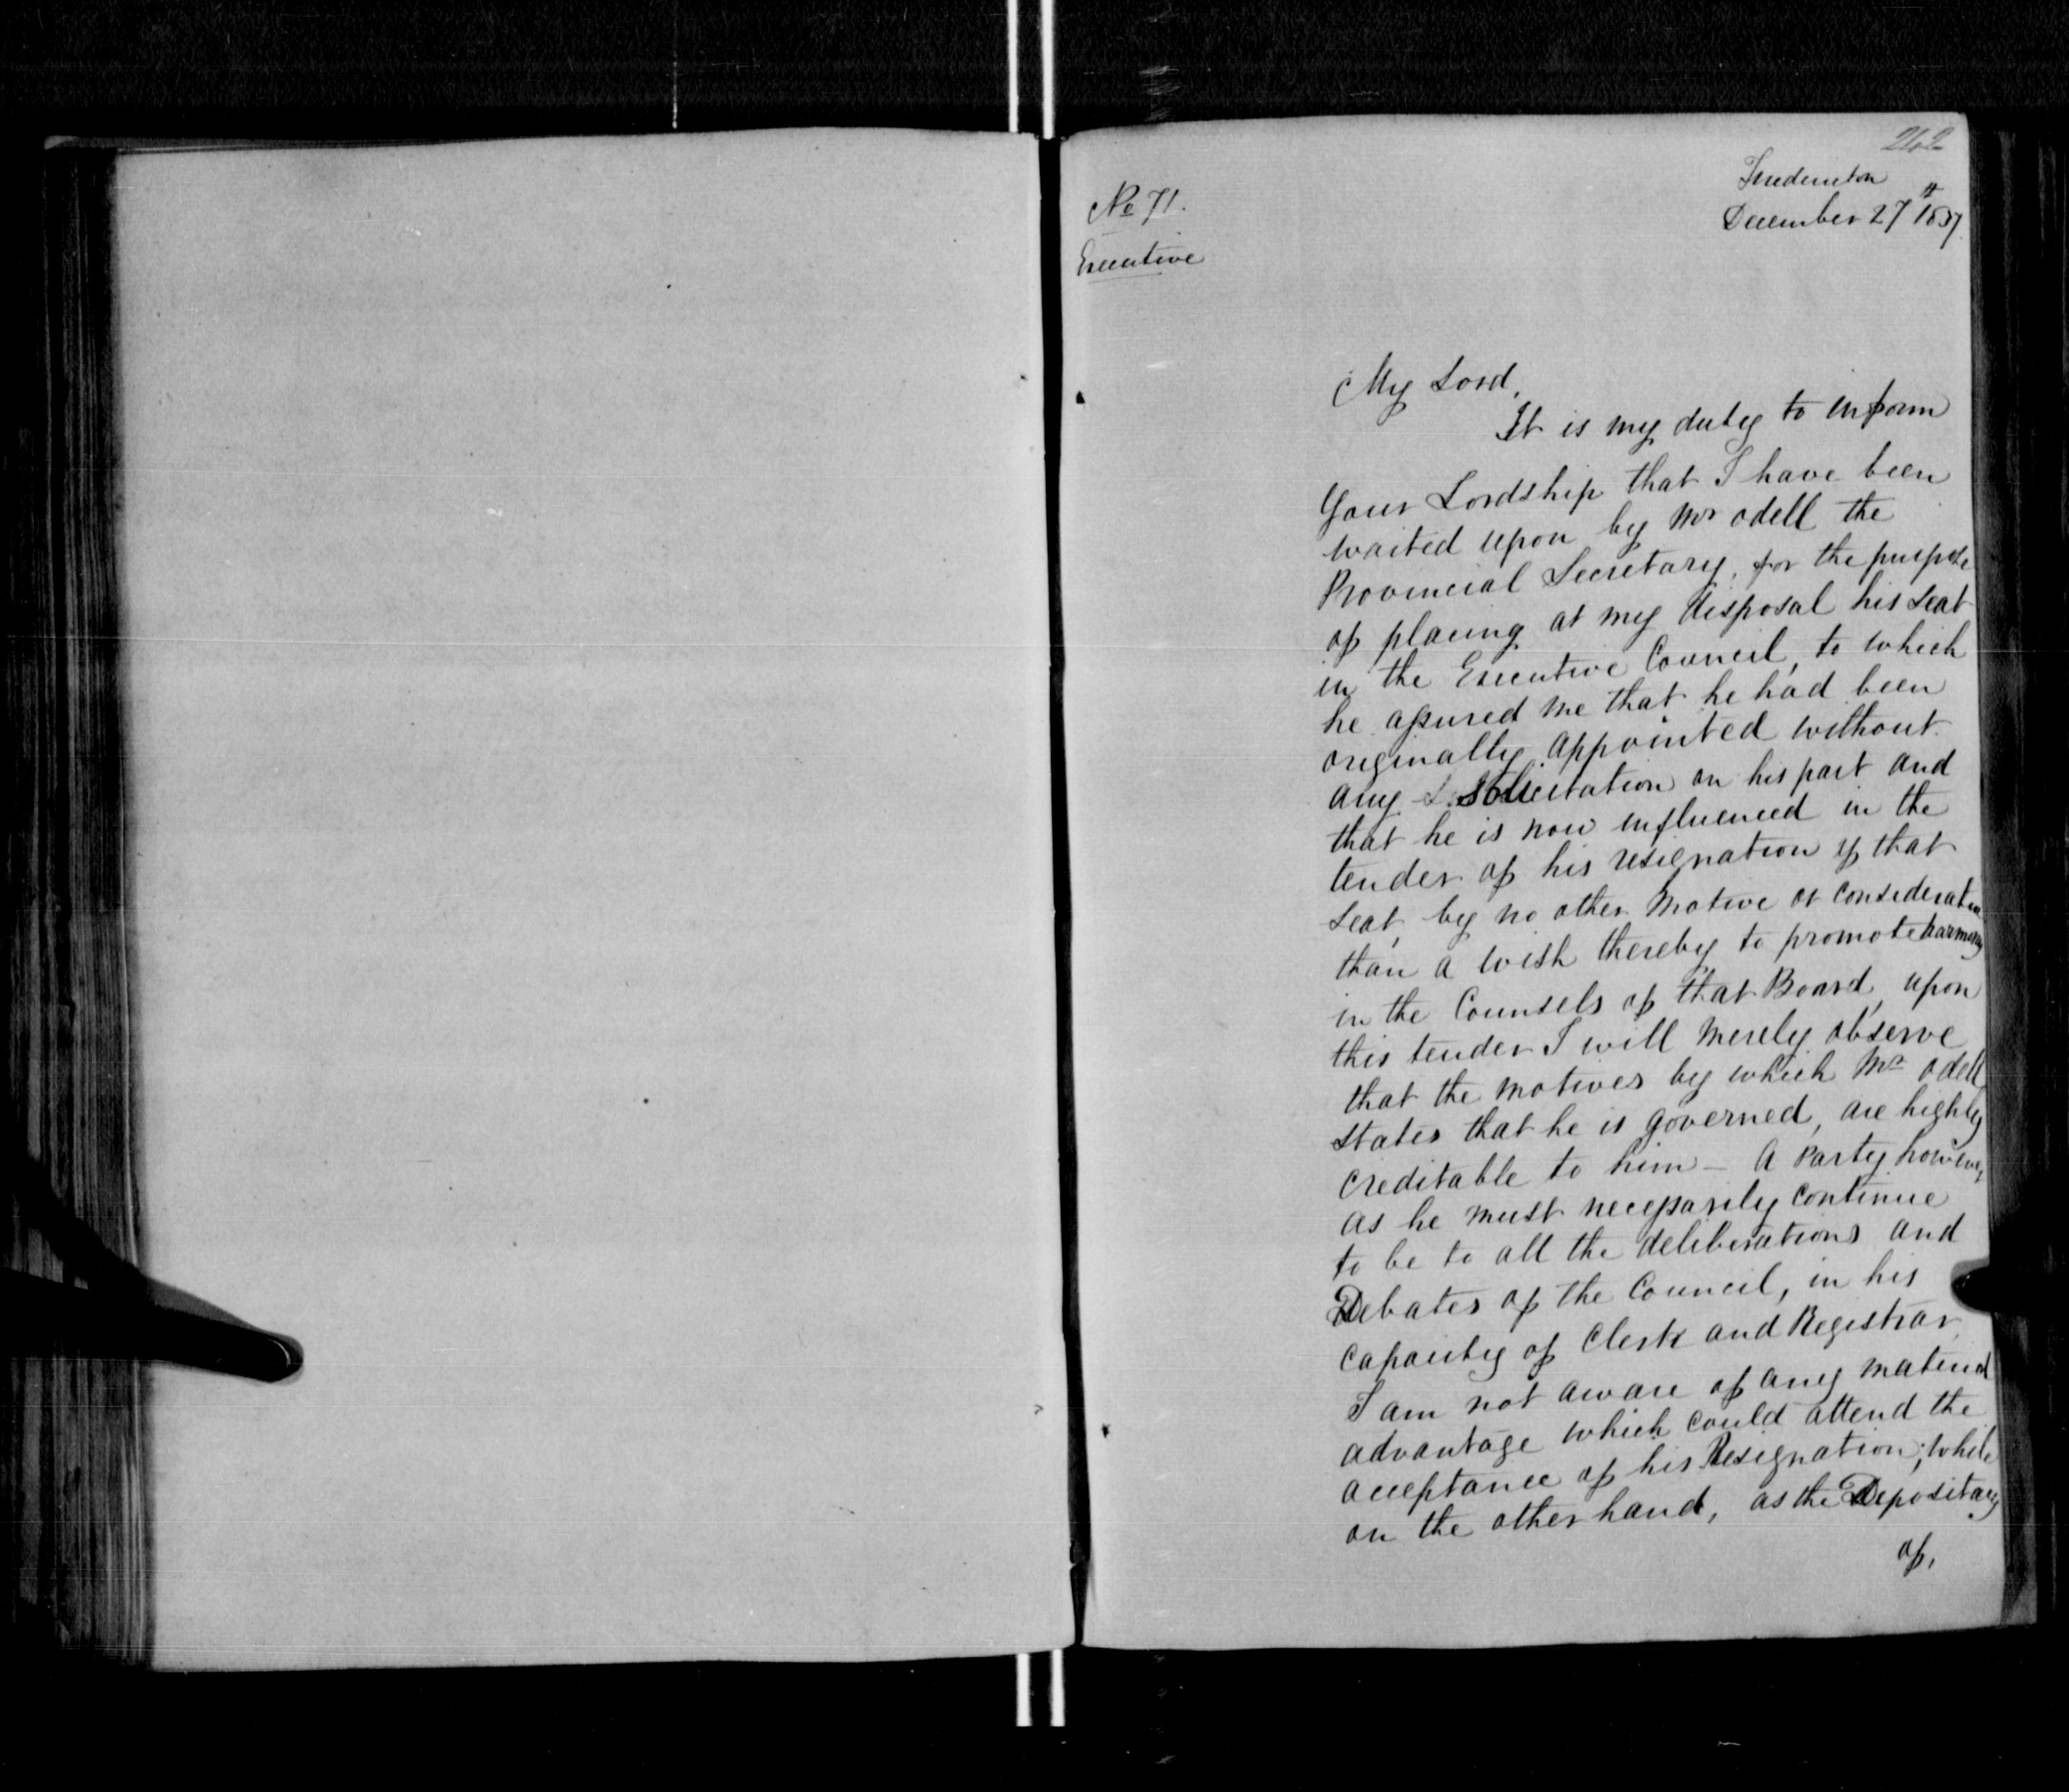 262
Fredericton
December 27th 1837.
No 71.
Executive
My Lord,
It is my duty to inform
Your Lordship that I have been
waited upon by Mr Odell the
Provincial Secretary, for the purpose
of placing at my disposal his Seat
in the Executive Council, to which
he assured me that he had been
originally appointed without
any solicitation on his part and
that he is now influenced in the
tender of his resignation of that
Seat, by no other Motive or Consideration
than a wish thereby to promote harmony
in the Counsels of that Board, upon
this tender I will merely observe
that the motives by which Mr Odell
states that he is governed, are highly
creditable to him – A Party however
as he must necessarily continue
to be to all the deliberations and
Debates of the Council, in his
capacity of Clerk and Registrar
I am not aware of any material
advantage which could attend the
acceptance of his Resignation; while
on the other hand, as the Depositary
of,